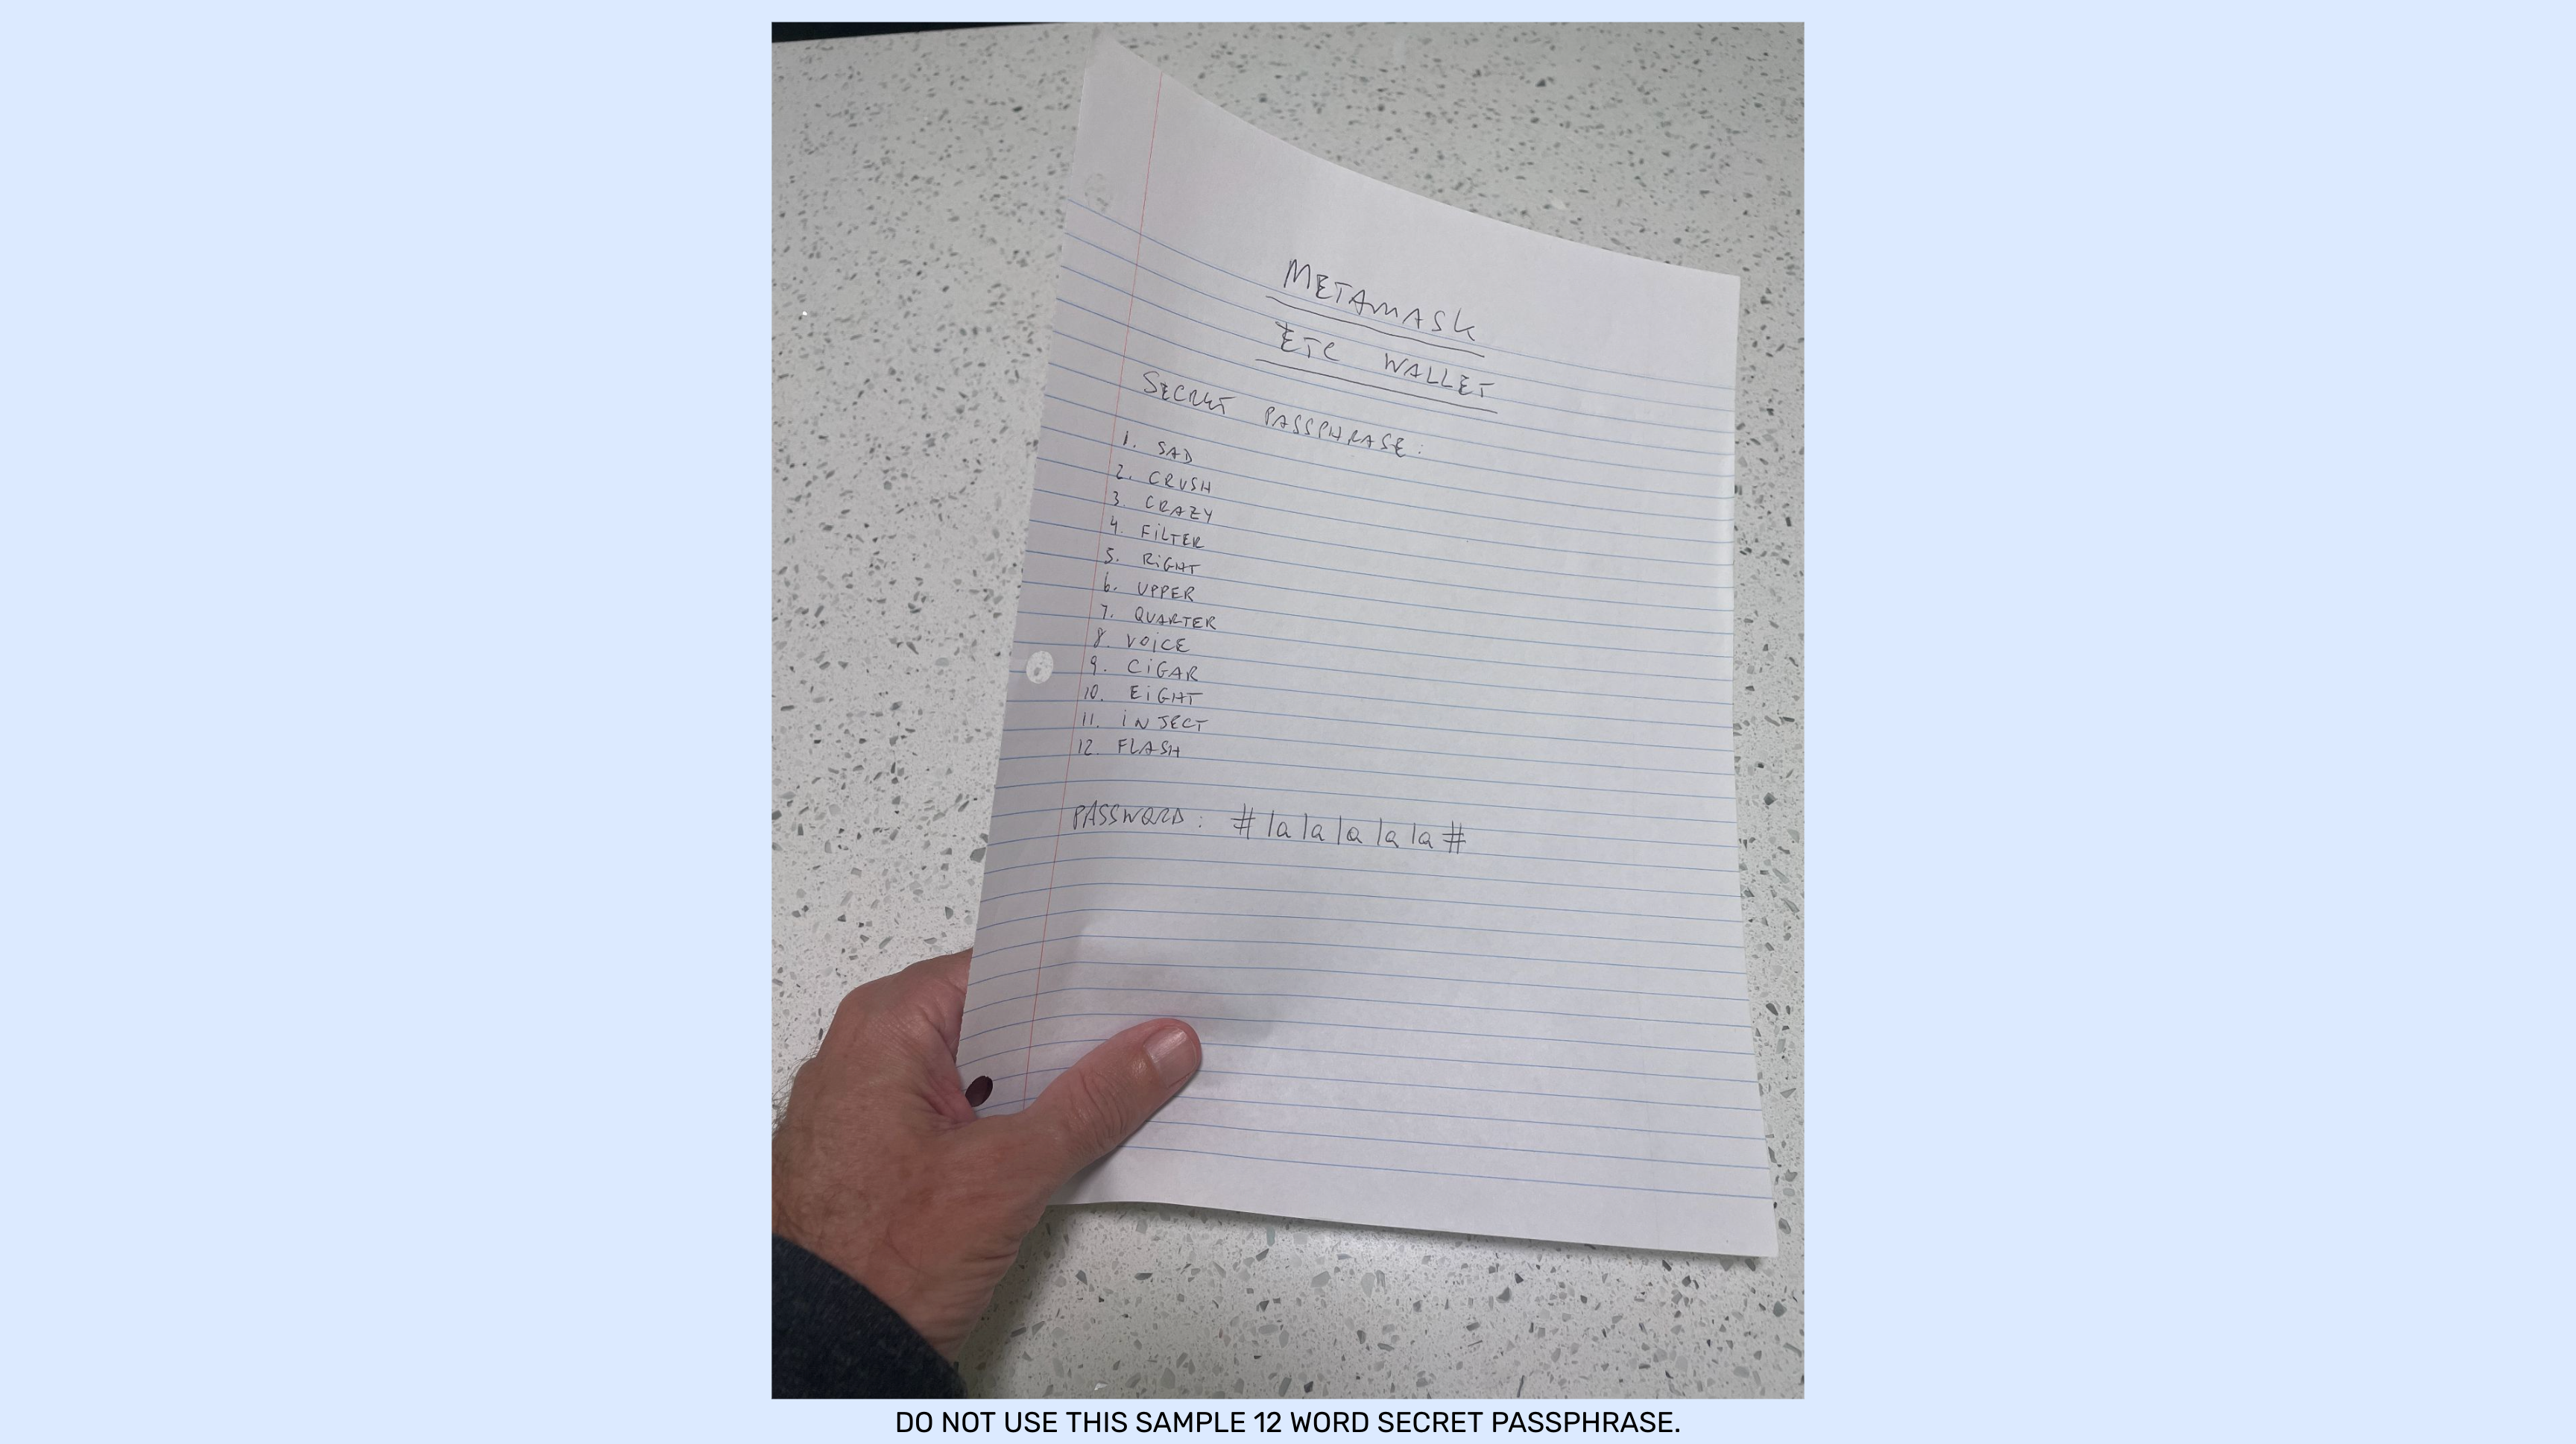 METAMASK
ETC WALLET
SECRET PASSPHRASE:
1. SAD
2. CRUSH
3. CRAZY
4. FILTER
5. RIGHT
6. UPPER
7. QUARTER
8. VOICE
9. CIGAR
10. EIGHT
11. INJECT
12. FLASH
PASSWORD: #lalalalala#
DO NOT USE THIS SAMPLE 12 WORD SECRET PASSPHRASE.